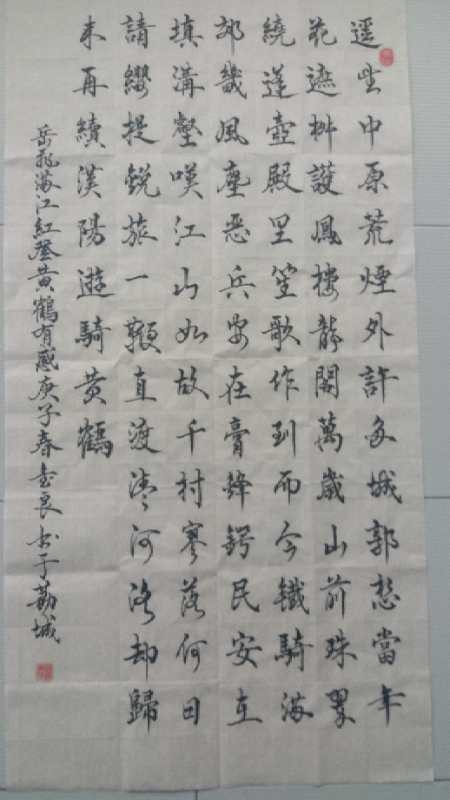 遥望中原荒煙外許多城郭想當年
花遮栁護鳳樓龍閣萬歲山前珠翠
繞蓬壺殿里笙歌作到而今鐵騎滿
郊畿風塵惡兵安在膏鋒鍔民安在
填溝壑嘆江山如故千村寥落何日
請纓提銳旅一鞭直渡清河洛却歸
来再續漢陽遊騎黄鶴
岳飛滿江紅登黄鶴有感庚子春良书于荔城